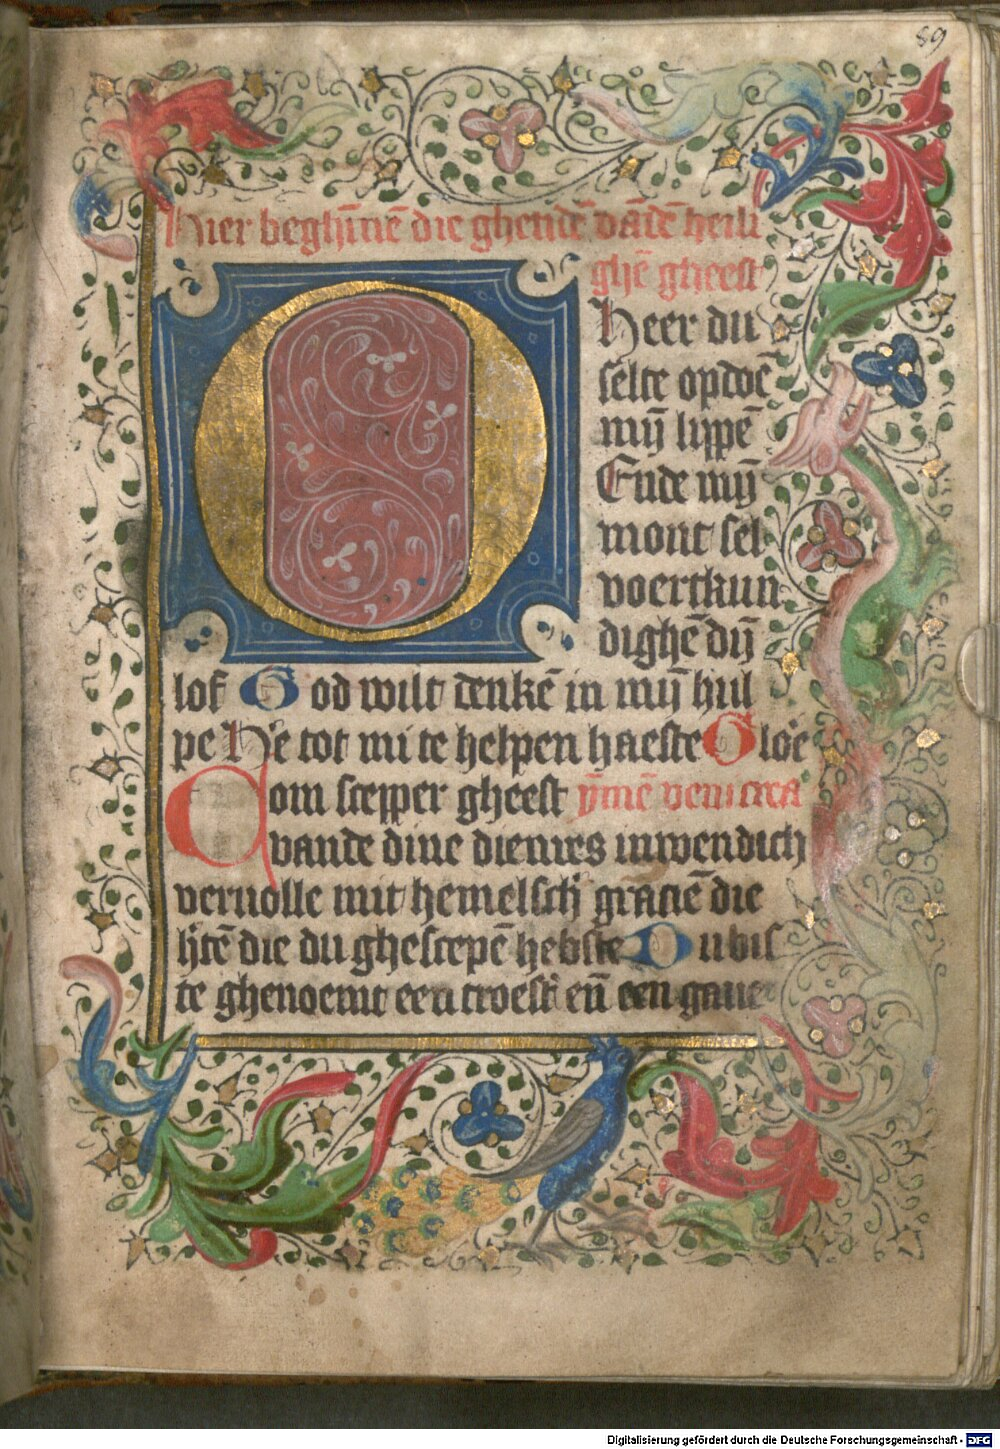 89
Hier beghı̄nē die ghetidē vādē heili
ghē gheest
O Heer du
selte opdoē
mȳ lippē
Ende mȳ
mont sel
voertkun
dighē dȳ
lof God wilt denkē in mȳ hul
pe He᷑ tot mi te helpen haeste Gloe᷑
Com scepper gheest ȳmē veni crea
vande dine dienres inwendich
vervolle mit hemelsch᷑ gracie die
h̓tē die du ghescepē hebste Du bis
te ghenoemt een troest᷑ eñ een gaue
Digitalisierung gefördert durch die Deutsche Forschungsgemeinschaft - DFG